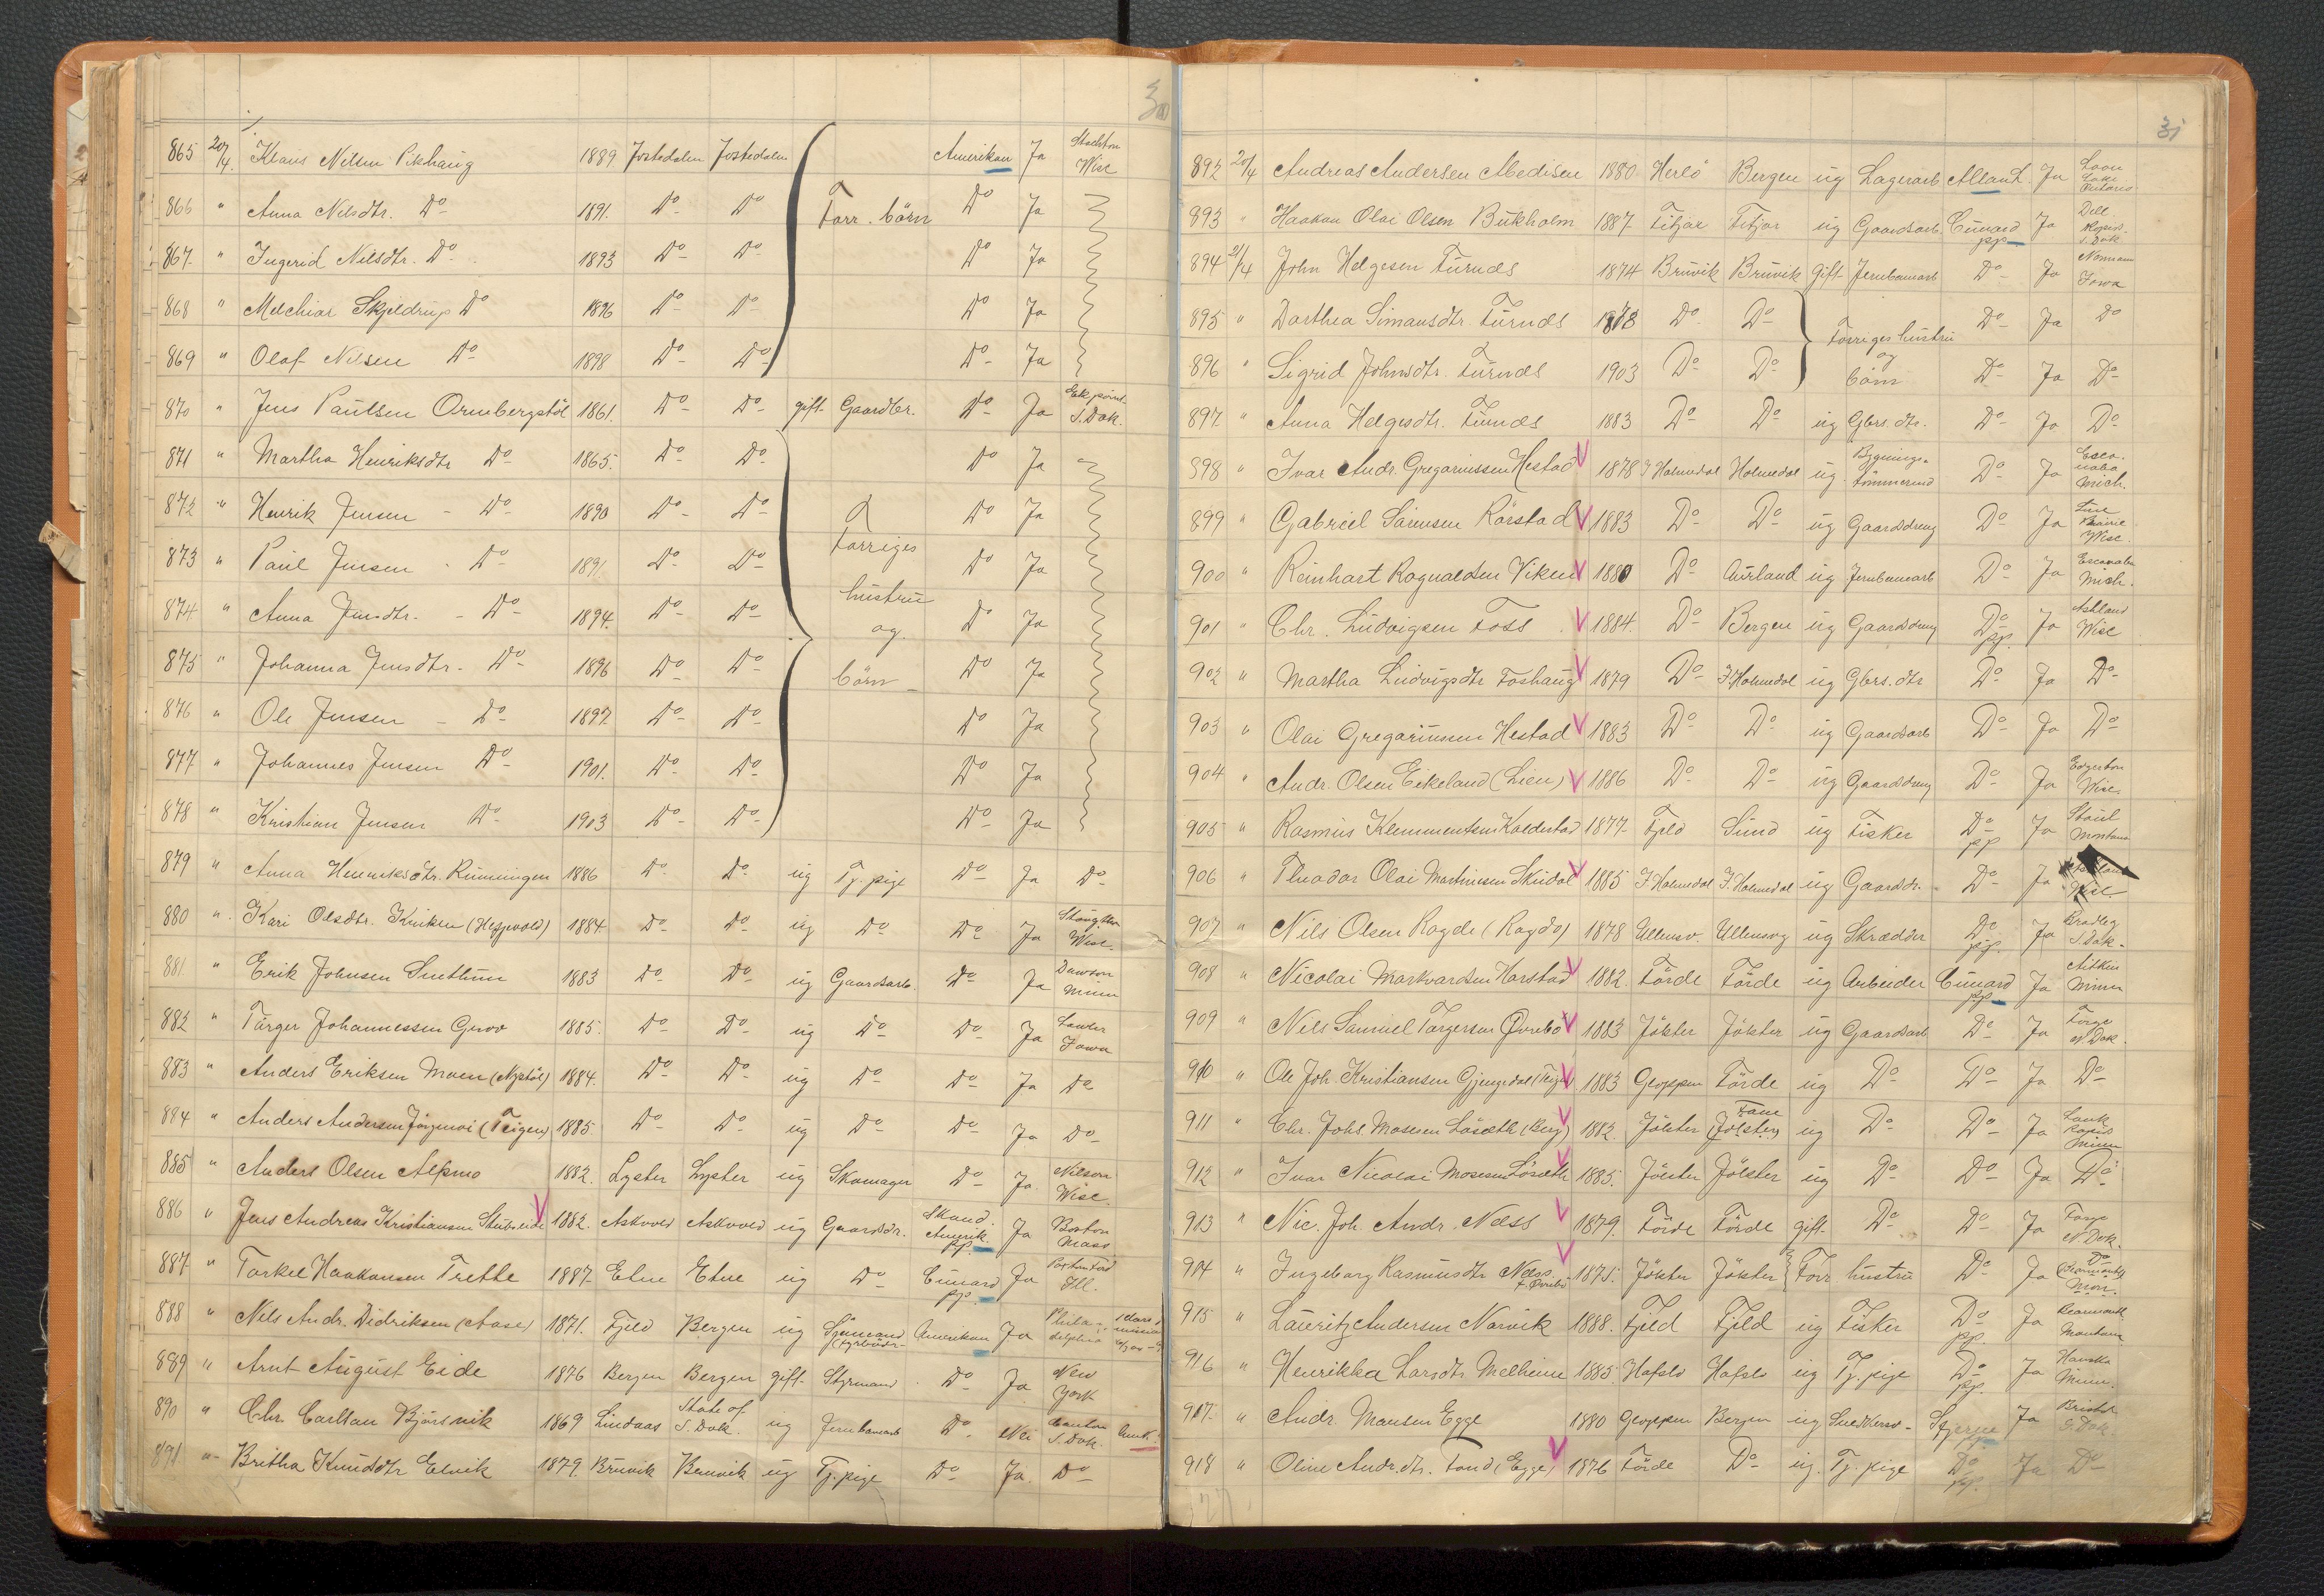 30
865 20/4 Klaus Nilsen Pikhaug 1889 Jostedalen Jostedalen Amerikan Ja Wisc
866 " Anna Nilsdtr. Do 1891. Do Do Forr. börn Do Ja
867. " Ingerid Nilsdtr. Do 1893 Do Do Do Ja
868 " Melchior Skjeldrup Do 1896 Do Do Do Ja
869 " Olaf Nilsen Do 1898 Do Do Do Ja
870 " Jens Paulsen Ormbergstöl 1861. Do Do gift Gaardbr. Do Ja Elk point S. Dak.
871 " Martha Henriksdtr Do 1865. Do Do Do Ja
872 " Henrik Jensen Do 1890 Do Do Forriges Do Ja
873 " Paul Jensen Do 1891 Do Do hustru Do Ja
874 " Anna Jensdtr. Do 1894. Do Do og Do Ja
875 " Johanna Jensdtr. Do 1896 Do Do börn Do Ja
876 " Ole Jensen Do 1897. Do Do Do Ja
877 " Johannes Jensen Do 1901. Do Do Do Ja
878 " Kristian Jensen Do 1903 Do Do Do Ja
879 " Anna Henriksdtr. Rünningen 1886 Do Do ug Tj. pige Do Ja Do
880 " Kari Olsdtr. Kruken 1884 Do Do ug Do Do Ja Stoughton Wisc.
881. " Erik Johnsen Snethun 1883 Do Do ug Gaardsarb. Do Ja Dawson Minn
882 " Törger Johannessen Grov 1885. Do Do ug Do Do Ja Lawler Iowa
883 " Anders Eriksen Moen (Nystöl) 1884. Do Do ug Do Do Ja Do
884 " Anders Andersen (Teigen) 1885. Do Do ug Do Do Ja Do
885 " Anders Olsen Alsmo 1882. Lyster Lyster ug Skomager Do Ja Nilson Wisc
886 " Jens Andreas Kristiansen Stubseide V 1882. Askvold Askvold ug Gaardsdr. Skand. Amerik. pp Ja Boston Mass
887 " Torkel Haakonsen Trette 1887 Etne Etne ug Do Cunard pp Ja Ill.
888 " Nils Andr. Didriksen (Aase) 1871. Fjeld Bergen ug Sömand Amerikan Ja Phila- delphia
889 " Arnt August Eide 1876 Bergen Bergen gift Styrmand Do Ja New York
890 " Chr. Carlsen Björsvik 1869 Lindaas State of S. Dak. ug Jernbanearb Do Nei Canton S. Dak.
891 " Britha Knudsdtr Elvik 1879. Bruvik Bruvik ug Tj. pige Do Ja. Do
31
892 20/4 Andreas Andersen Madisen 1880 Herlö Bergen ug Lagerarb Allan L. Ja Ontario
893 " Haakon Olai Olsen Bukholm 1887 Fitjar Fitjar ug Gaardsarb. Cunard pp Ja Dell Rapids. S. Dak
894 21/4 John Helgesen Furnes 1874 Bruvik Bruvik Gift Jernbanearb Do Ja Iowa
895 " Dorthea Simonsdtr. Furnes 1878 Do Do Forriges hustru Do Ja Do
896 " Sigrid Johnsdtr. Furnes 1903 Do Do og börn Do Ja Do
897. " Anna Helgesdtr. Furnes 1883 Do Do ug Gbrs. dtr. Do Ja Do
898 " Ivar Andr. Gregoriussen Hestad V 1878 Y. Holmedal Holmedal ug Bygnings- tömmermd Do Ja Esca- naba Mich.
899 " Gabriel Sörensen Rörstad V 1883 Do Do ug Gaardsdreng Do Ja Prairie Wisc.
900 " Reinhart Ragnvaldsen Viken V 1880 Do Aurland ug Jernbanearb Do Ja Escanaba Mich.
901 " Chr. Ludvigsen Foss V 1884. Do Bergen ug Gaardsdreng Do pp. Ja Ashland Wisc
902 " Martha Ludvigsdtr Foshaug V 1879 Do Y. Holmedal ug Gbrs. dtr Do Ja Do
903 " Olai Gregoriussen Hestad V 1883 Do Do ug Gaardsarb Do Ja Do
904 " Andr. Olsen Eikeland (Lien) V 1886 Do Do ug Gaardsdreng Do Ja Edgerton Wisc.
905 " Rasmus Klemmentsen Kaldestad 1877 Fjeld Sund ug Fisker Do pp Ja Montana
906 " Theodor Olai Martinesen Skudal V 1885 Y. Holmedal Y. Holmedal ug Gaardsdr. Do Ja
907 " Nils Olsen Ragde (Ragde) 1878 Ullensv. Ullensvg ug Skrædder Do pp. Ja Bradley S. Dak.
908 " Nicolai Markvardsen Harstad V 1882. Förde Förde ug Arbeider Cunard pp Ja Aitkin Minn
909 " Nils Samuel Torgersen Övrebö V 1883 Jölster Jölster ug Gaardsarb Do Ja N Dak.
910 " Ole Joh. Kristiansen Gjengedal V 1883 Gloppen Förde ug Do Do Ja Do
911 " Chr. Johs. Mosesen Löseth (Berg) V 1882. Jölster Fane (Jölster) ug Do Do Ja Rapids Minn
912 " Ivar Nicolai Mosesen Löseth V 1885. Jölster Jölster ug Do Do Ja Do
913 " Nic. Joh. Andr. Ness V 1879. Förde Förde gift Do Do Ja N Dak.
914 " Ingeborg Rasmusdtr Ness V f. Övrebö 1875. Jölster Jölster Forr. hustru Do Ja Do Mon.
915 " Lauritz Andersen Narvik 1888. Fjeld Fjeld ug Fisker Do pp. Ja Montana
916 " Henrikka Larsdtr Melheim 1885. Hafslo Hafslo ug Tj. pige Do pp. Ja Minn.
917 " Andr Monsen Egge 1880 Gloppen Bergen ug Snedkersv. Stjerne Ja Bristol S. Dak.
918 " Oline Andr. dtr. (Egge) V 1876 Förde Do ug. Tj. pige Do pp. Ja Do